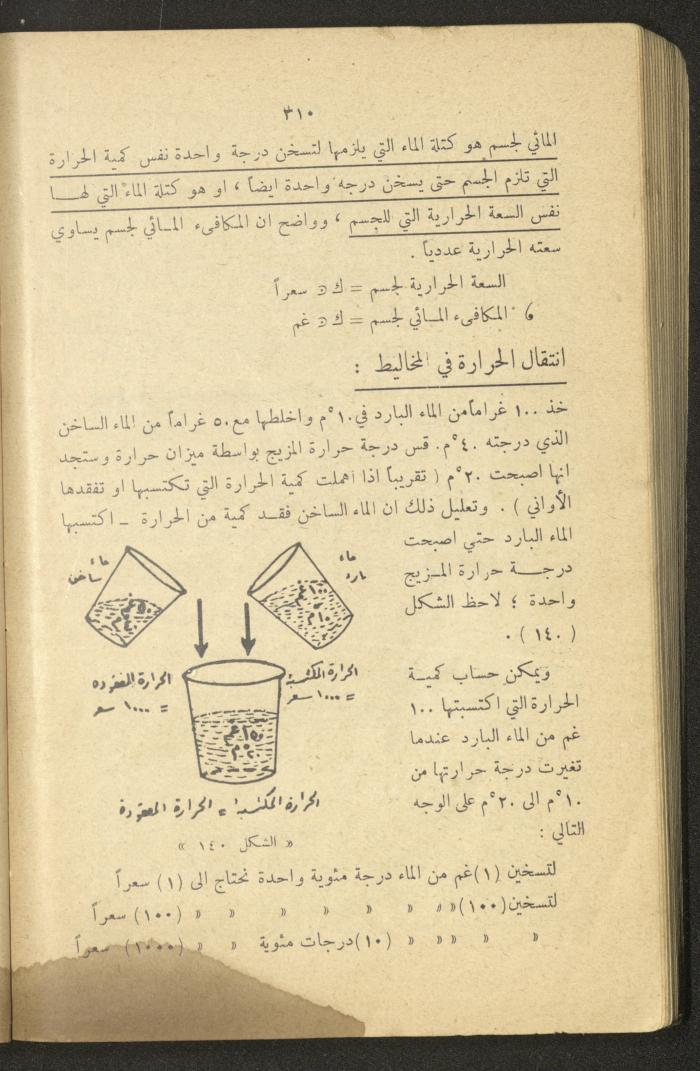 ٣١٠
المائي لجسم هو كتلة الماء التي يلزمها لتسخن درجة واحدة نفس كمية الحرارة
التي تلزم الجسم حتى يسخن درجه واحدة ايضاً ، او هو كتلة الماء التي لهــا
نفس السعة الحرارية التي للجسم ، وواضح ان المكافىء المـائي لجسم يساوي
سعته الحرارية عددياً .
السعة الحرارية لجسم = ك سعراً
المكافىء المـائي لجسم = ك غم
انتقال الحرارة في المخاليط :
خذ ١٠٠ غراماً من الماء البارد في ١٠°م واخلطها مع ٥٠ غراماً من الماء الساخن
الذي درجته ٤٠°م. قس درجة حرارة المزيج بواسطة ميزان حرارة وستجد
انها اصبحت ٢٠°م ( تقريباً اذا اهملت كمية الحرارة التي تكتسبها او تفقدها
الأواني ) . وتعليل ذلك ان الماء الساخن فقـد كمية من الحرارة ـ اكتسبها
الماء البارد حتي اصبحت
درجـــة حرارة المـزيج
واحدة ؛ لاحظ الشكل
( ١٤٠ ) .
ماء ساخن
٥٠ غم
٤٠°م
ماء بارد
١٠٠ غم
١٠°م
الحرارة المفقوده
= ١٠٠٠ سعر
الحرارة المكتسبة
= ١٠٠٠ سعر
١٥٠ غم
٢٠°م
الحرارة المكتسبة = الحرارة المفقودة
« الشكل ١٤٠ »
ويمكن حساب كميـة
الحرارة التي اكتسبتها ١٠٠
غم من الماء البارد عندما
تغيرت درجة حرارتها من
١٠°م الى ٢٠°م على الوجه
التالي :
لتسخين (١) غم من الماء درجة مئوية واحدة نحتاج الى (١) سعراً
لتسخين (١٠٠) » » » » » » » » (١٠٠) سعراً
» » » » » (١٠) درجات مئوية » » (١٠٠٠) سعراً